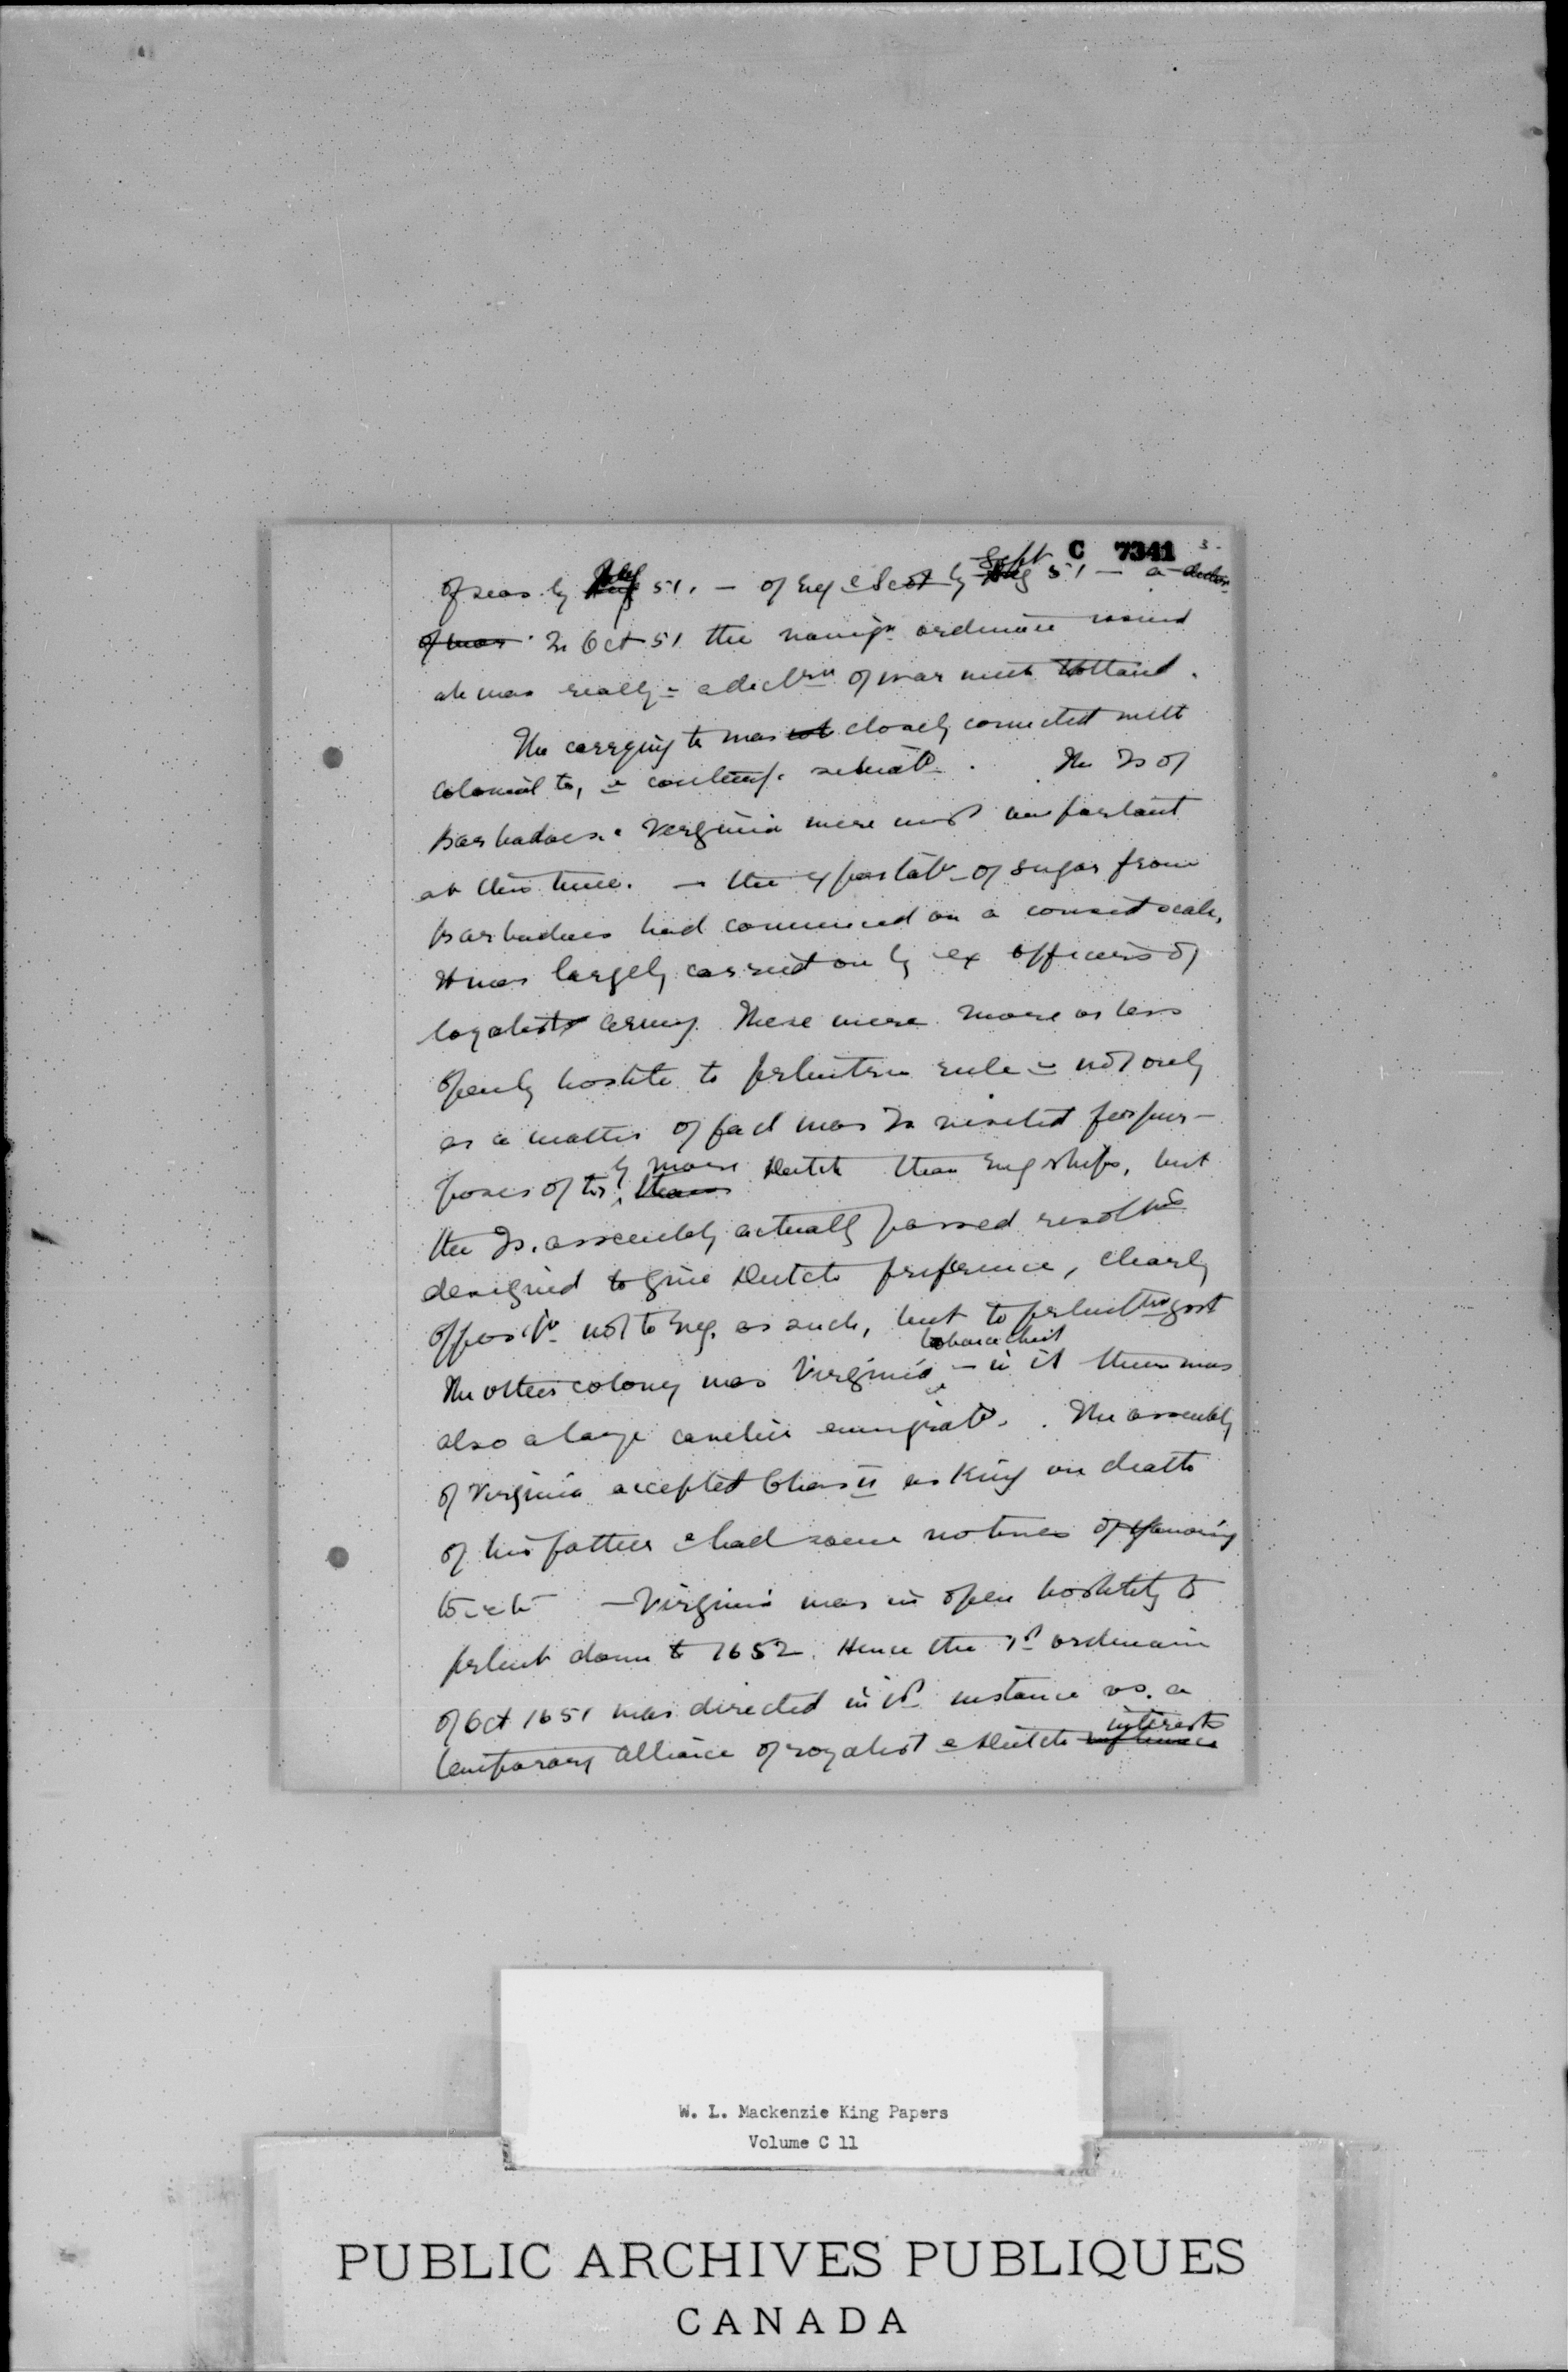 C 7341 3-
of seas by July 51. — of Eng & Scot by Sept 51 — a declon
of war. In Oct 51 the navign ordinance issued
wh was really = a declrn of war with Holland.
The carrying tr was closely connected with
colonial tr, & contemp. situatn. The Is of
Barbadoes & Virginia were most important
at this time. — the exportatn of sugar from
Barbadoes had commenced on a considt scale,
It was largely carried on by ex officers of
loyalist army. These were more or less
openly hostile to parliamentn rule & not only
as a matter of fact was Is visited for pur-
poses of tr by more Dutch than Eng ships, but
the Is. assembly actually passed resoltns
designed to give Dutch preference, clearly
opposn not to Eng. as such, but to govt
The other colony was Virginia tobacco — in it there was
also a large cavalier emigratn. The assembly
of Virginia accepted Chas II as King on death
of his father & had some notions of
— Virginia was in open hostility to
parlmt down to 1652. Hence the 1st ordinance
of Oct 1651 was directed in 1st instance vs. a
temporary alliance of royalist & Dutch interests
W. L. Mackenzie King Papers
Volume C 11
PUBLIC ARCHIVES PUBLIQUES
CANADA